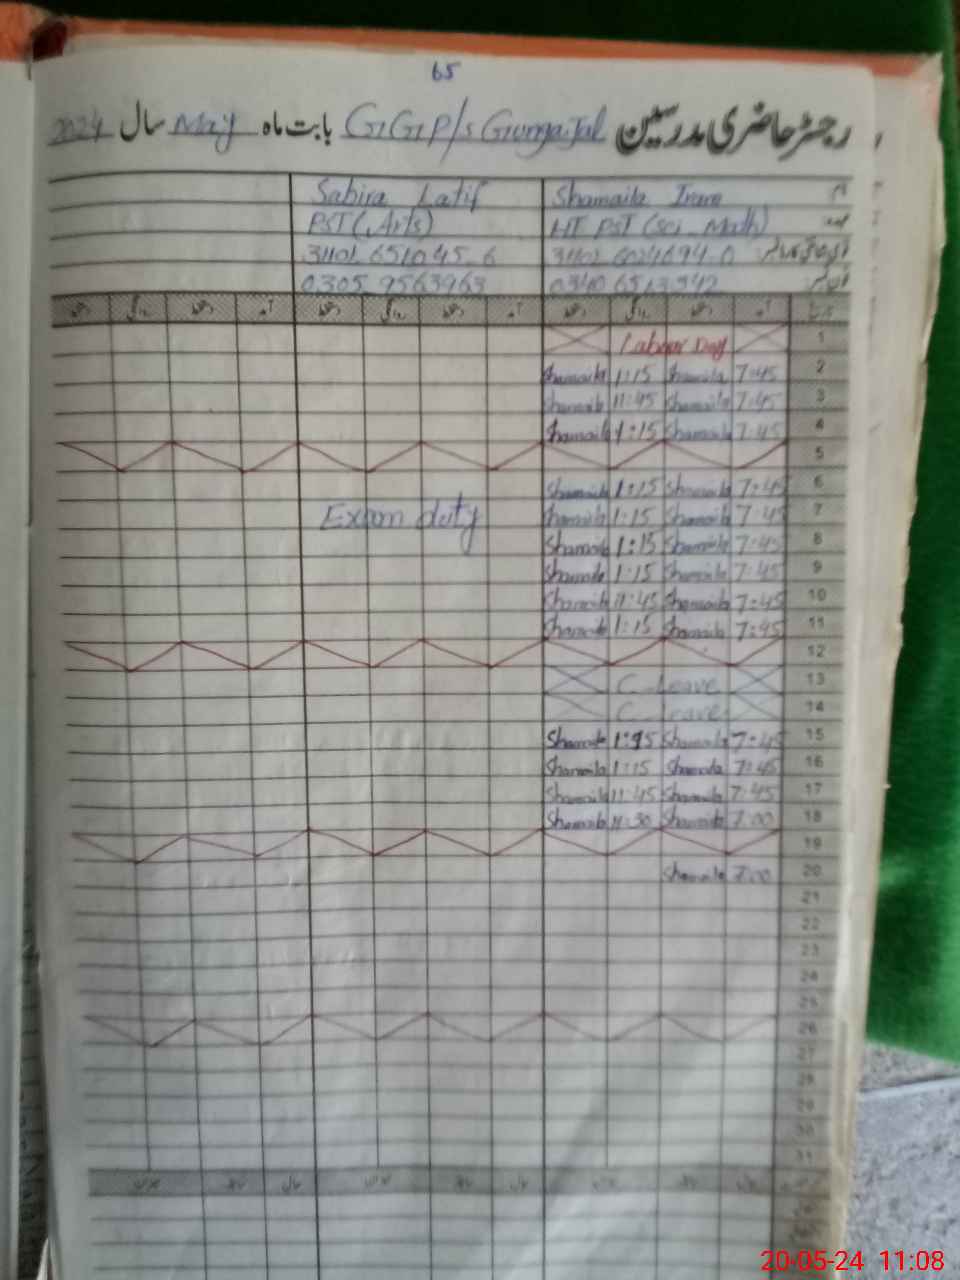 65
رجسٹر حاضری مدرسین GGP/s Gunga Jal بابت ماہ May سال 2024
نام Shamaila Iram Sabira Latif
عہدہ HT PST (Sci_Math) PST (Arts)
31101 651045_6
0305_9563963
آمد دستخط روانگی دستخط آمد دستخط روانگی دستخط
1 Labour Day
2 7:45 Shamaila 1:15 Shamaila
3 7:45 Shamaila 11:45 Shamaila
4 7:45 Shamaila 1:15 Shamaila
5
6 7:45 Shamaila 1:15 Shamaila
7 7:45 Shamaila 1:15 Shamaila Exam duty
8 7:45 Shamaila 1:15 Shamaila
9 7:45 Shamaila 1:15 Shamaila
10 7:45 Shamaila 11:45 Shamaila
11 7:45 Shamaila 1:15 Shamaila
12
13 C_Leave
14 C_Leave
15 7:45 Shamaila 1:15 Shamaila
16 7:45 Shamaila 1:15 Shamaila
17 7:45 Shamaila 11:45 Shamaila
18 7:00 Shamaila 11:30 Shamaila
19
20 7:00 Shamaila
21
22
23
24
25
26
27
28
29
30
31
20-05-24 11:08